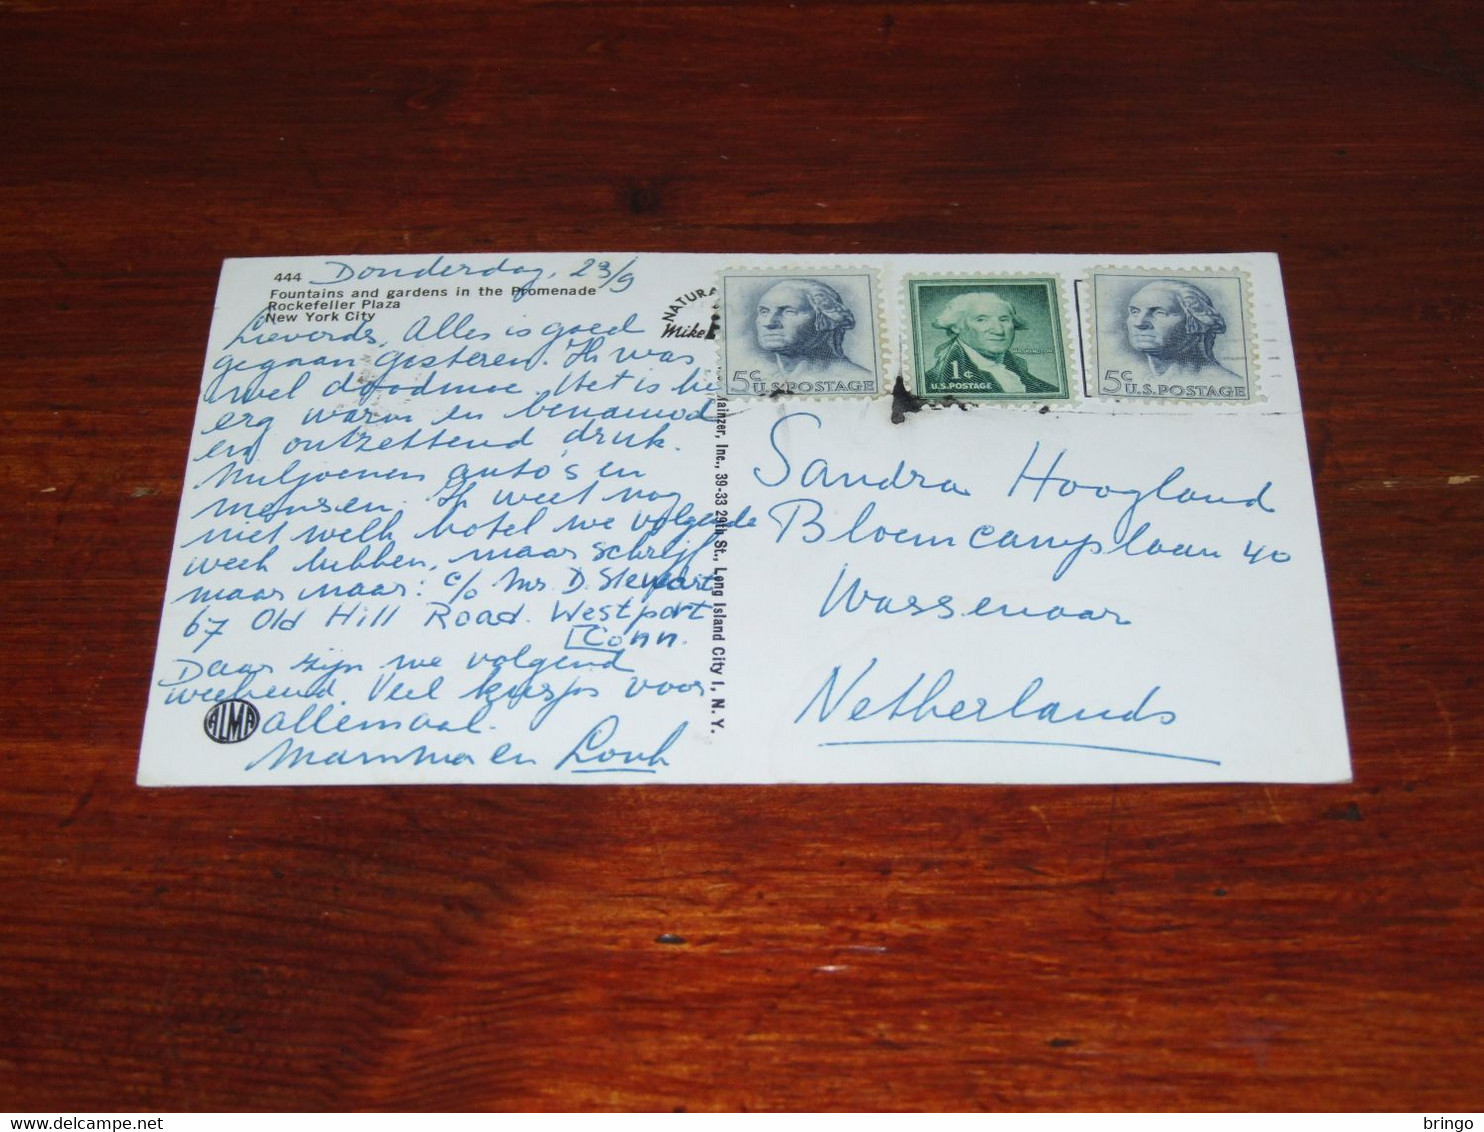 444 Donderdag, 23/9
Fountains and gardens in the Promenade
Rockefeller Plaza
New York City
Lieverds, Alles is goed
gegaan gisteren. Ik was
wel doodmoe. Het is hier
erg warm en benauwd
en ontzettend druk.
Miljoenen auto's en
mensen. Ik weet nog
niet welk hotel we volgende
week hebben, maar schrijf
maar naar: c/o Mrs D. Stewart
67 Old Hill Road. Westport
Conn.
Daar zijn we volgend
weekend. Veel kusjes voor
allemaal.
Mamma en
ALMA
NATUR
Mike
Mainzer, Inc., 39-33 29th St., Long Island City 1, N. Y.
5¢
U.S. POSTAGE
WASHINGTON
1¢
U.S. POSTAGE
5¢
U.S. POSTAGE
Sandra Hoogland
Bloemcamplaan 40
Wassenaar
Netherlands
delcampe.net
bringo